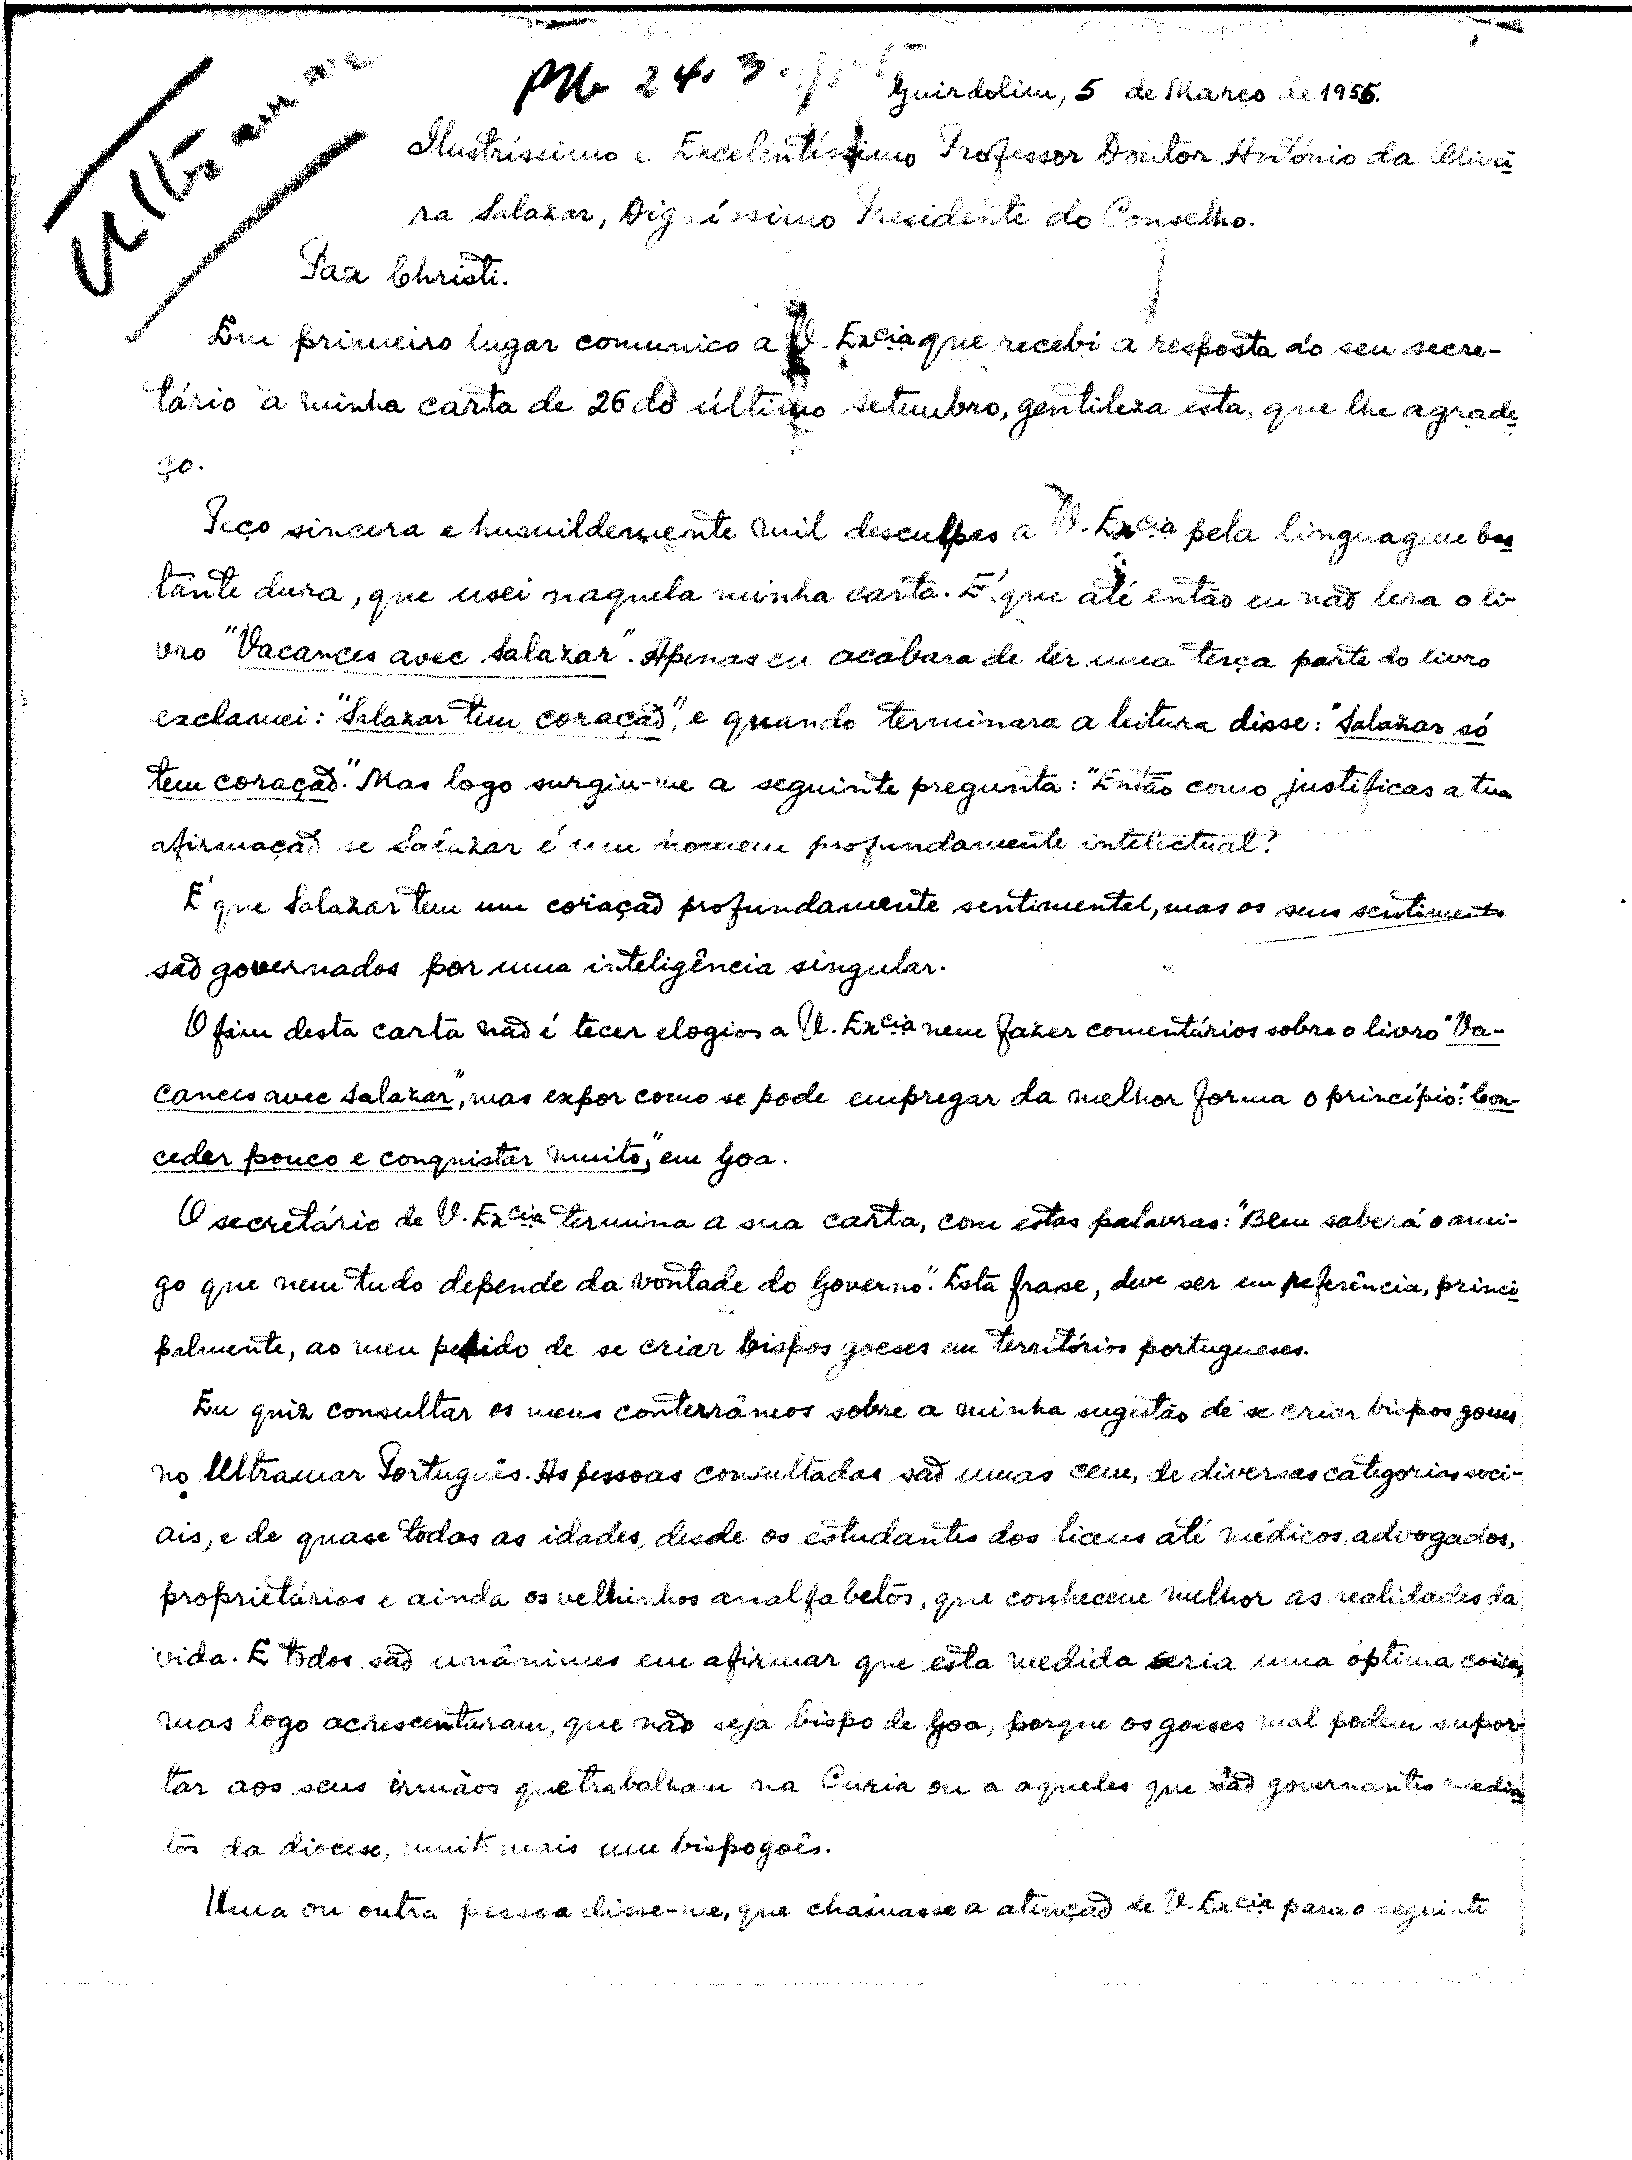 Ultramar
24. 3.
Guirdolim, 5 de Março de 1956.
Ilustríssimo e Excelentíssimo Professor Doutor António da Olivei
ra Salazar, Digníssimo Presidente do Conselho.
Pax Christi.
Em primeiro lugar comunico a V. Excia que recebi a resposta do seu secre-
tário à minha carta de 26 do último setembro, gentileza esta, que lhe agrade
ço.
Peço sincera e humildemente mil desculpas a V. Excia pela linguagem bas
tante dura, que usei naquela minha carta. É que até então eu não lera o li-
vro "Vacances avec Salazar". Apenas eu acabara de ler uma terça parte do livro
exclamei: "Salazar tem coração", e quando terminara a leitura disse: "Salazar só
tem coração." Mas logo surgiu-me a seguinte pregunta: "Então como justificas a tua
afirmação se Salazar é um homem profundamente intelectual?
É que Salazar tem um coração profundamente sentimental, mas os seus sentimentos
são governados por uma inteligência singular.
O fim desta carta não é tecer elogios a V. Excia nem fazer comentários sobre o livro "Va-
cances avec Salazar", mas expor como se pode empregar da melhor forma o princípio: "Con-
ceder pouco e conquistar muito," em Goa.
O secretário de V. Excia termina a sua carta, com estas palavras: "Bem saberá o ami-
go que nem tudo depende da vontade do Governo". Esta frase, deve ser em referência, princi
palmente, ao meu pedido de se criar bispos goeses em territórios portugueses.
Eu quiz consultar os meus conterrâneos sobre a minha sugestão de se criar bispos goeses
no Ultramar Português. As pessoas consultadas são umas cem, de diversas categorias soci-
ais, e de quase todas as idades, desde os estudantes dos liceus até médicos, advogados,
proprietários e ainda os velhinhos analfabetos, que conhecem melhor as realidades da
vida. E todos são unânimes em afirmar que esta medida seria uma óptima coisa,
mas logo acrescentaram, que não seja bispo de Goa, porque os goeses mal podem supor
tar aos seus irmãos que trabalham na Curia ou a aqueles que são governantes media
tos da diocese, muito mais um bispo goês.
Uma ou outra pessoa disse-me, que chamasse a atenção de V. Excia para o seguinte